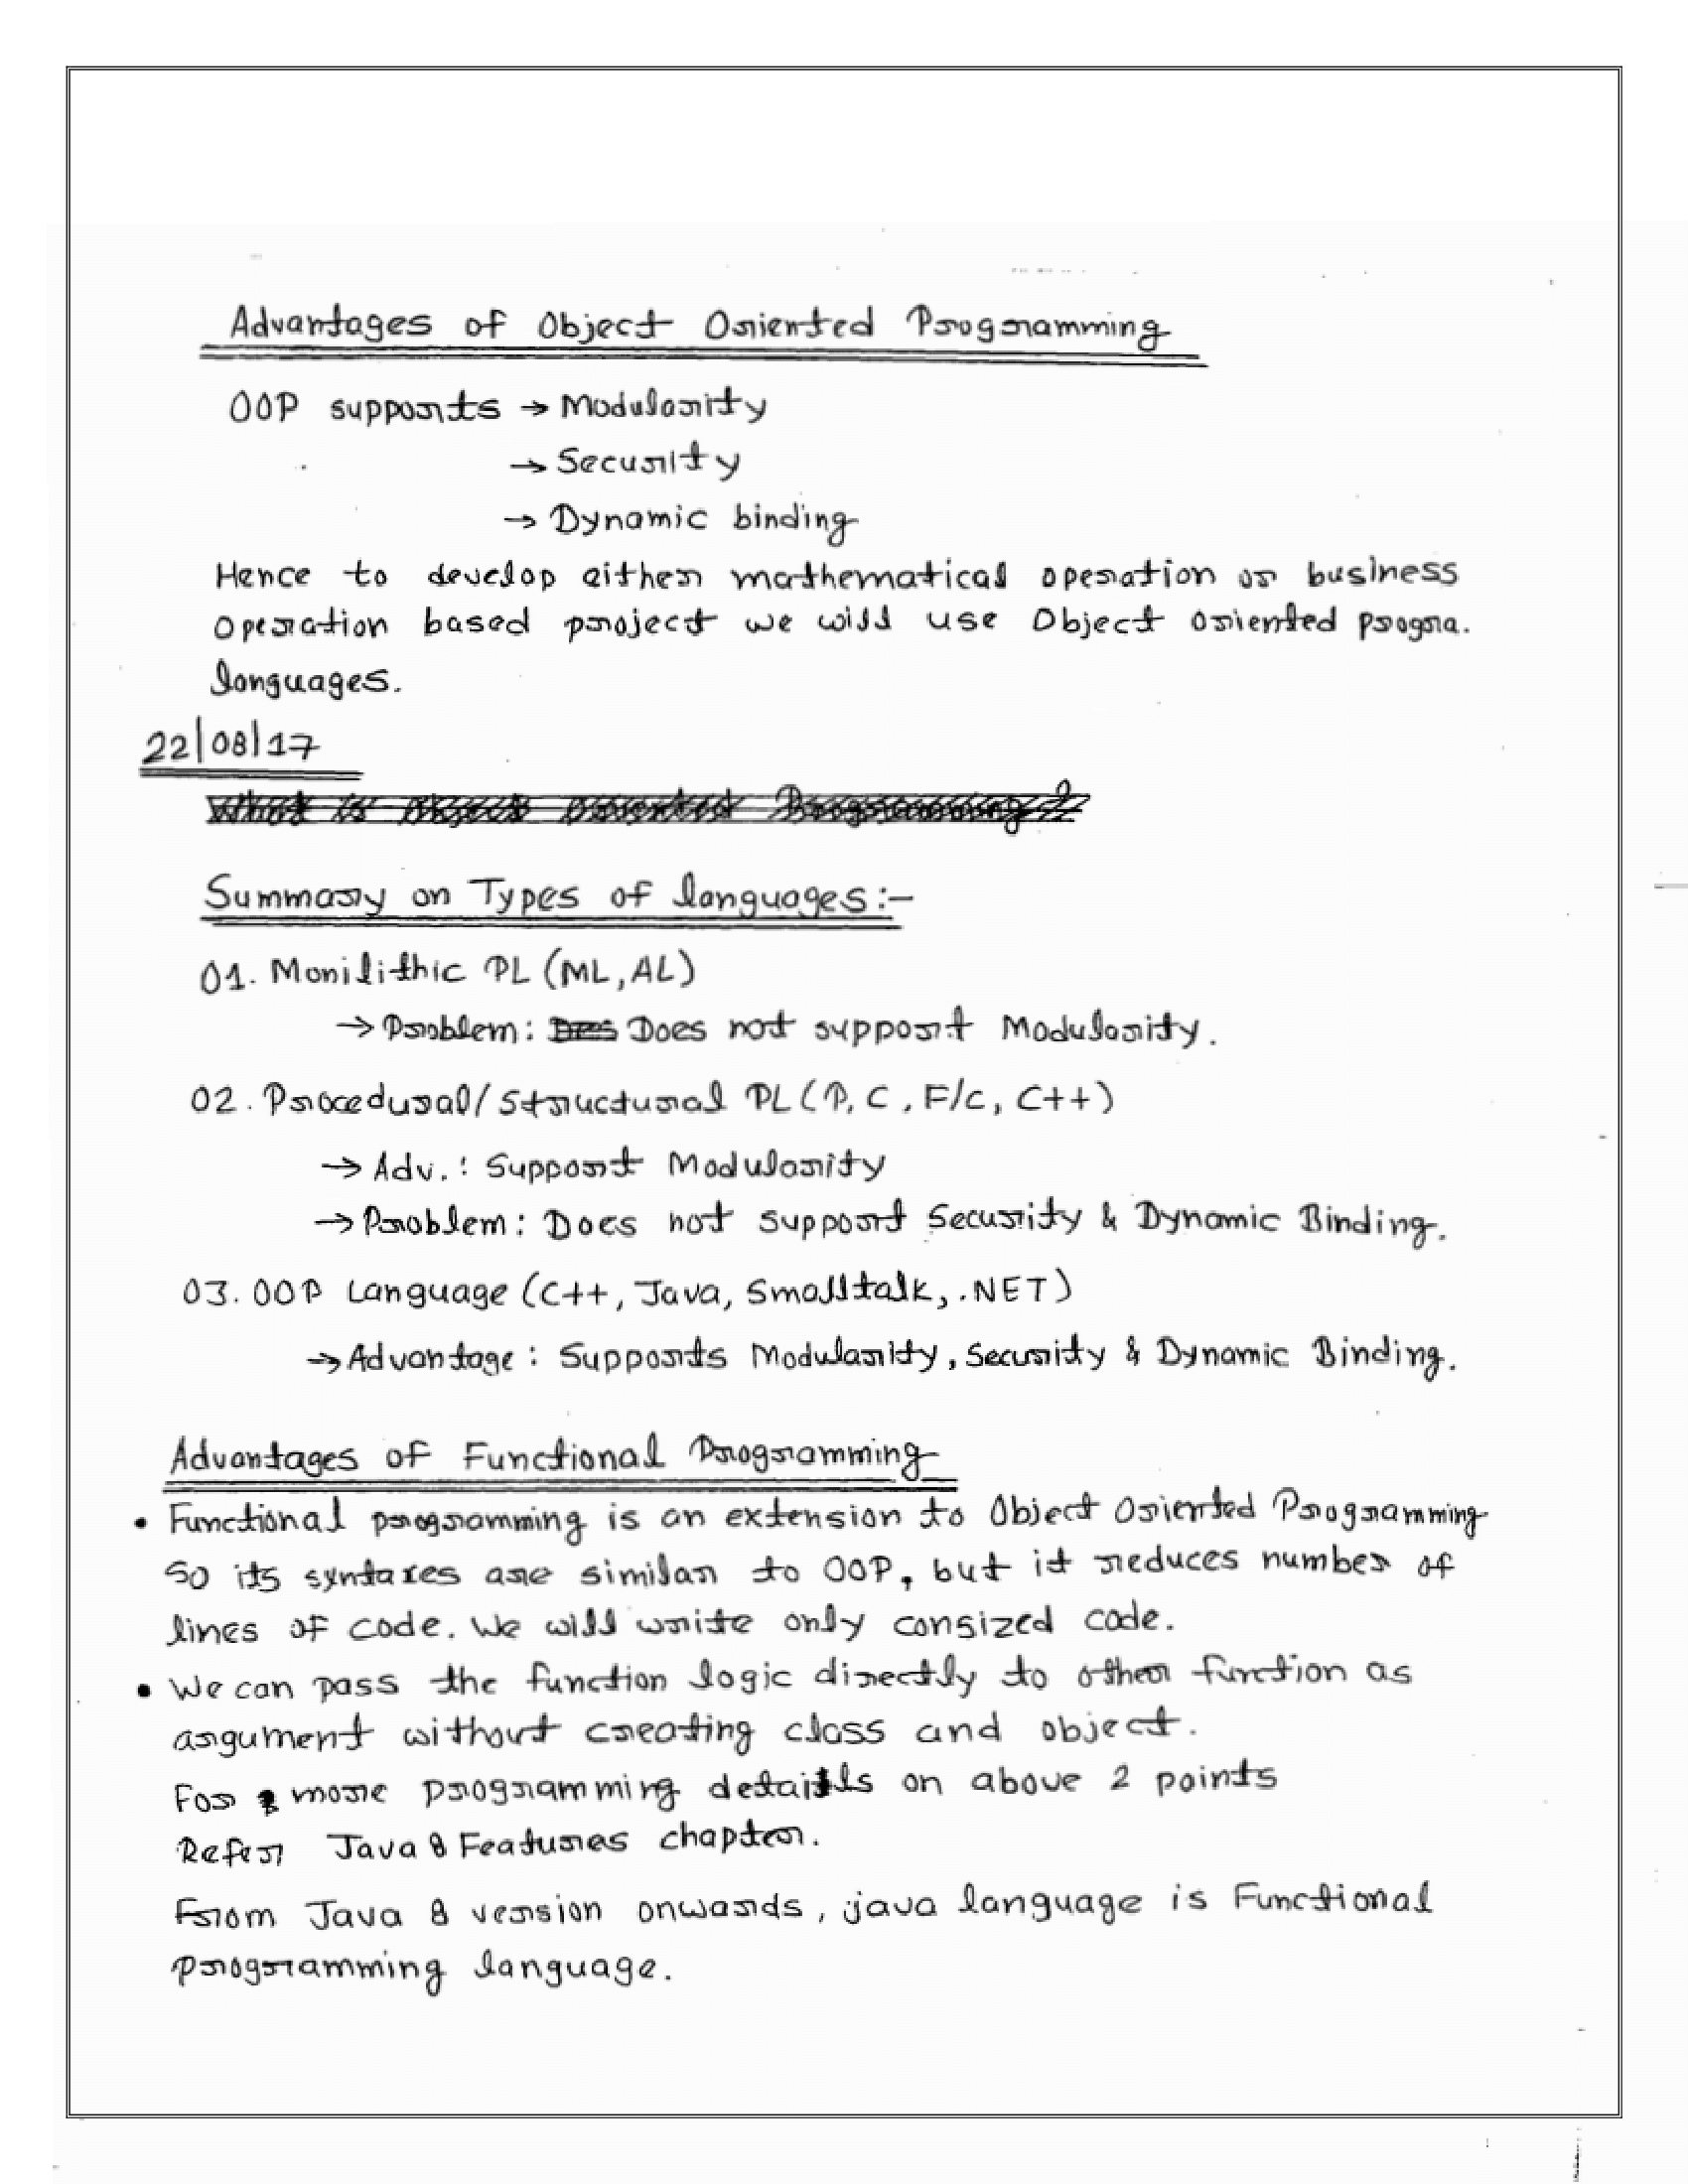 Advantages of Object Oriented Programming
OOP supports → Modularity
→ Security
→ Dynamic binding
Hence to develop either mathematical operation or business
operation based project we will use Object oriented progra.
languages.
22/08/17
What is object oriented Programming?
Summary on Types of languages:-
01. Monilithic PL (ML, AL)
→ Problem: Does Does not support Modularity.
02. Procedural/Structural PL (P, C, F/c, C++)
→ Adv.: Support Modularity
→ Problem: Does not support Security & Dynamic Binding.
03. OOP Language (C++, Java, Smalltalk, .NET)
→ Advantage: Supports Modularity, Security & Dynamic Binding.
Advantages of Functional Programming
• Functional programming is an extension to Object Oriented Programming
So its syntaxes are similar to OOP, but it reduces number of
lines of code. We will write only consized code.
• We can pass the function logic directly to other function as
argument without creating class and object.
For more programming details on above 2 points
Refer Java 8 Features chapter.
From Java 8 version onwards, java language is Functional
programming language.